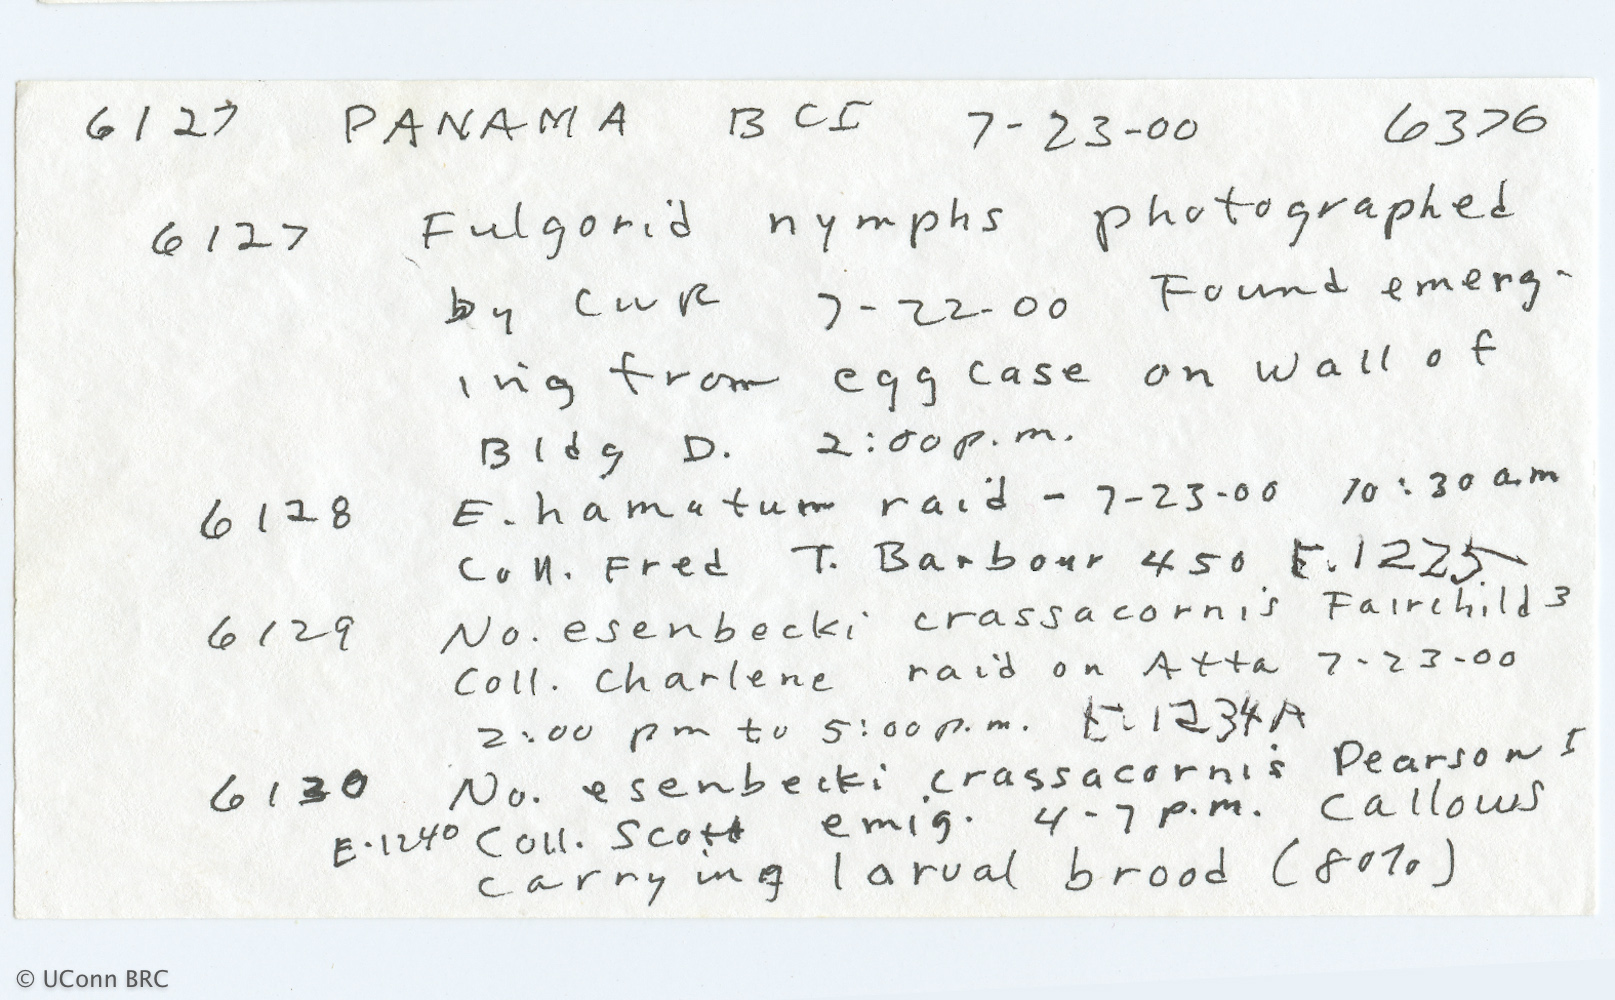 6127 PANAMA BCI 7-23-00 6376
6127 Fulgorid nymphs photographed
by CWR 7-22-00 Found emerg-
ing from egg case on wall of
Bldg D. 2:00 p.m.
6128 E. hamatum raid - 7-23-00 10:30 a.m
Coll. Fred T. Barbour 450 E.1225
6129 No. esenbecki crassacornis Fairchild 3
Coll. Charlene raid on Atta 7-23-00
2:00 pm to 5:00 p.m. E.1234A
6130 No. esenbecki crassacornis Pearson I
E.1240 Coll. Scott emig. 4-7 p.m. Callows
carrying larval brood (80%)
© UConn BRC